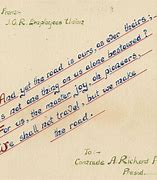 From:-
J.O.R. Employees Union
And yet the road is ours, as ever theirs;
Is not one thing on us alone bestowed?
For us, the master joy, oh pioneers,
We shall not travel, but we make
the road.
To:-
Comrade A. Richard
Presid